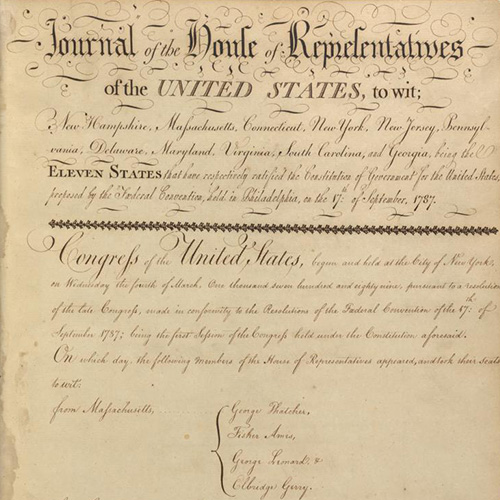 Journal of the House of Representatives
of the UNITED STATES, to wit;
New Hampshire, Massachusetts, Connecticut, New York, New Jersey, Pennsyl-
vania, Delaware, Maryland, Virginia, South Carolina, and Georgia, being the
ELEVEN STATES that have respectively ratified the Constitution of Government for the United States,
proposed by the Federal Convention, held in Philadelphia, on the 17th of September, 1787.
Congress of the United States, begun and held at the City of New York,
on Wednesday the fourth of March, One thousand seven hundred and eighty nine, pursuant to a resolution
of the late Congress, made in conformity to the Resolutions of the Federal Convention of the 17th of
September 1787; being the first Session of the Congress held under the Constitution aforesaid.
On which day, the following members of the House of Representatives appeared, and took their seats
to wit:
from Massachusetts,
George Thatcher,
Fisher Ames,
George Leonard, &
Elbridge Gerry.